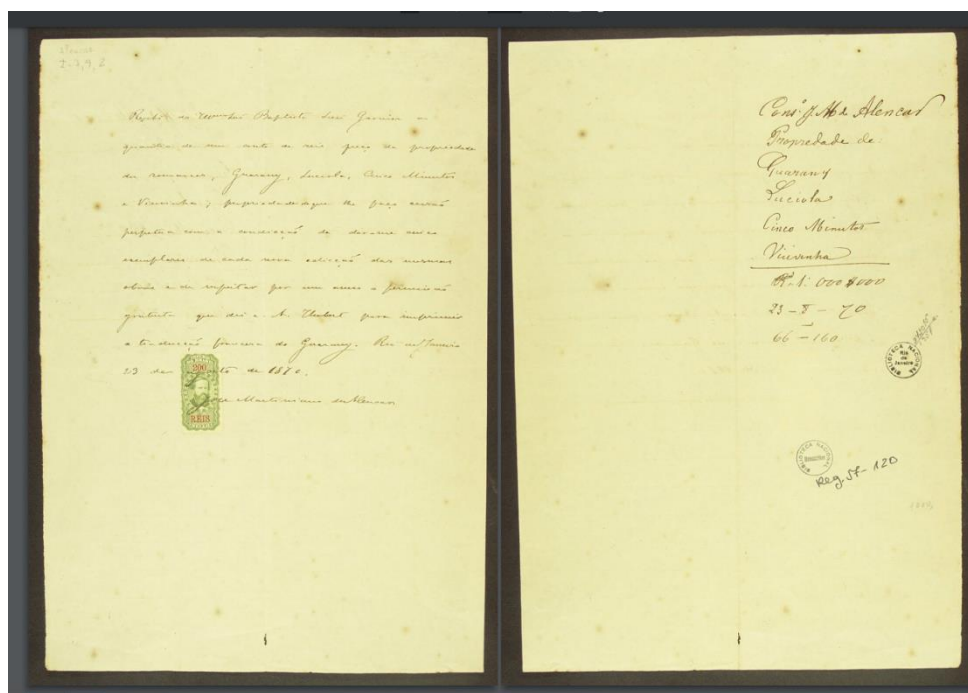 I-7,9,2
Recebi do Illmo Snr Baptiste Luis Garnier a
quantia de um conto de reis preço da propriedade
dos romances, Guarany, Luciola, Cinco Minutos
e Viuvinha; propriedade de que lhe faço cessão
perpetua com a condicção de dar-me cinco
exemplares de cada nova edicção das mesmas
obras e de respeitar por um anno a permissão
gratuita que dei a A. Hubert para imprimir
a traducção francesa do Guarany. Rio de Janeiro
23 de Agosto de 1870.
José Martiniano de Alencar
200
REIS
Consº J. M. de Alencar
Propredade de:
Guarany
Luciola
Cinco Minutos
Viuvinha
R. 1:000$000
23-8-70
66-160
BIBLIOTECA NACIONAL
Rio
de
Janeiro
BIBLIOTECA NACIONAL
Reg. 57-120